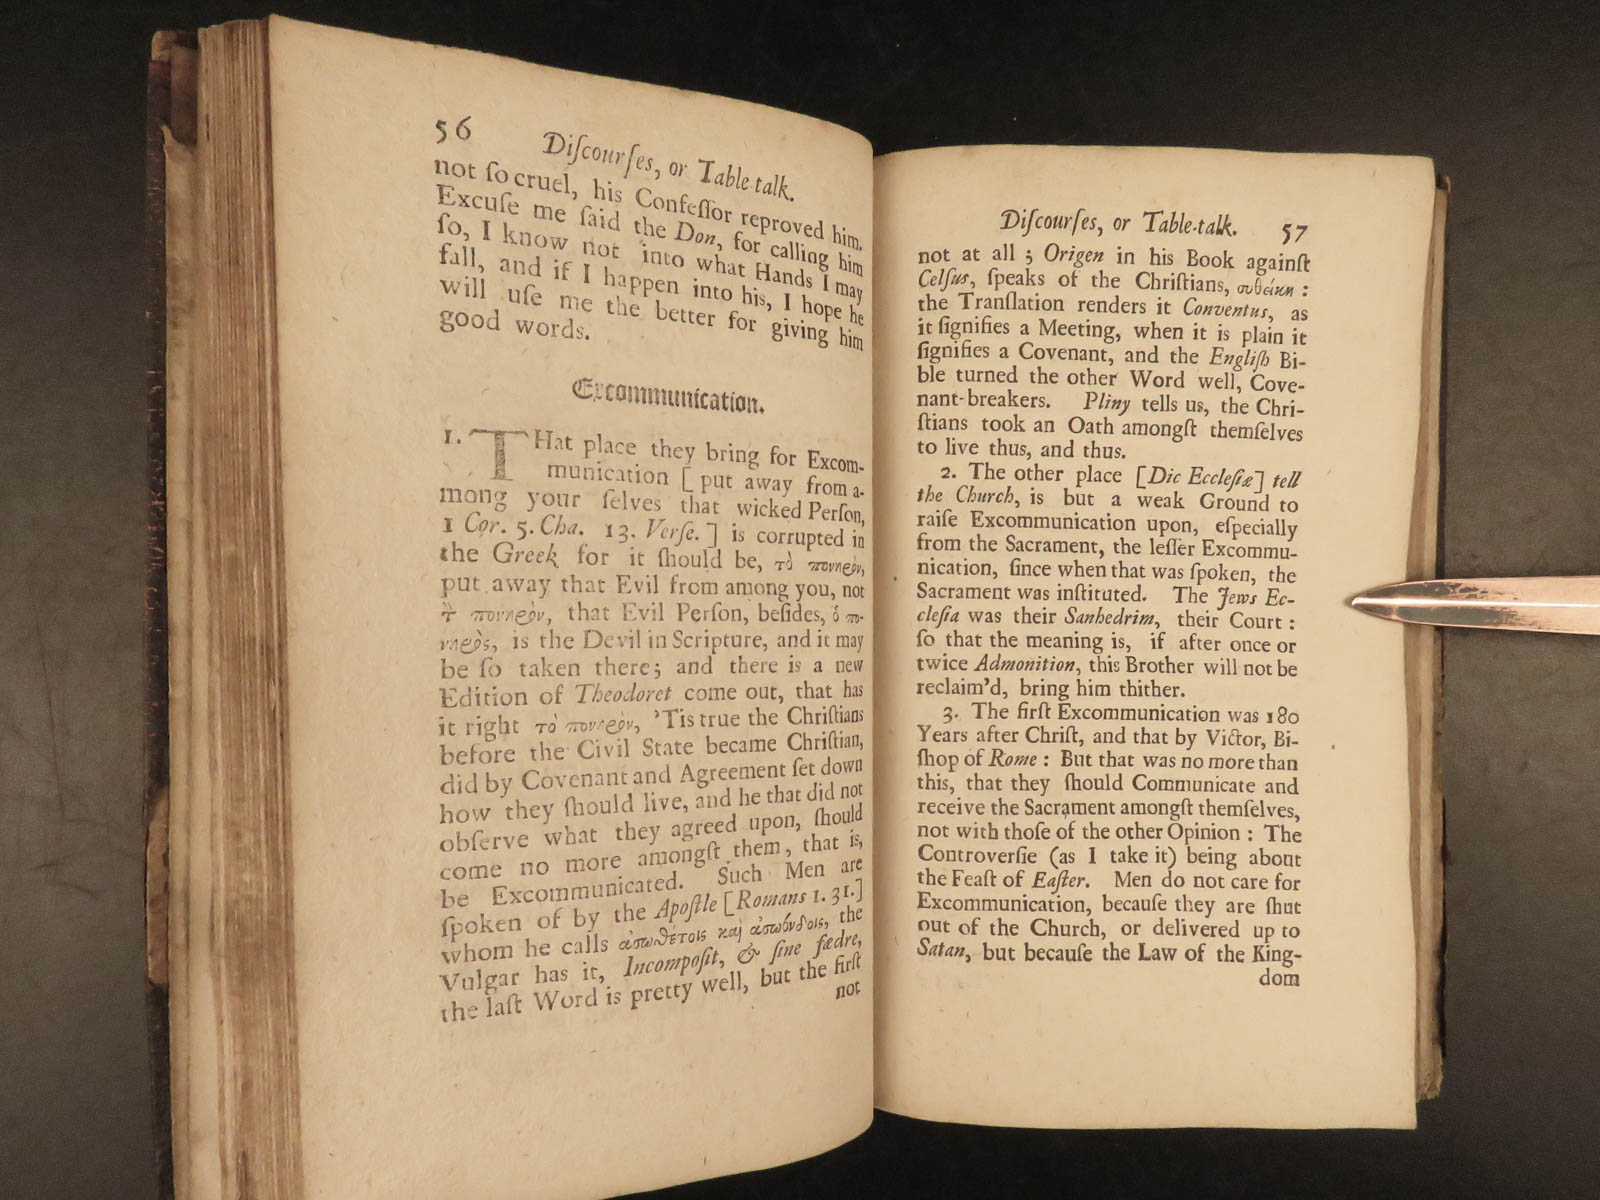 56
Diſcourſes, or Table-talk.
not ſo cruel, his Confeſſor reproved him.
Excuſe me ſaid the Don, for calling him
ſo, I know not into what Hands I may
fall, and if I happen into his, I hope he
will uſe me the better for giving him
good words.
Excommunication.
1. THat place they bring for Excom-
munication [ put away from a-
mong your ſelves that wicked Perſon,
1 Cor. 5. Cha. 13. Verſe. ] is corrupted in
the Greek for it ſhould be, τὸ πονηρὸν,
put away that Evil from among you, not
τ̀ πονηρὸν, that Evil Perſon, beſides, ὁ πο-
νηρὸς, is the Devil in Scripture, and it may
be ſo taken there; and there is a new
Edition of Theodoret come out, that has
it right τὸ πονηρὸν, 'Tis true the Chriſtians
before the Civil State became Chriſtian,
did by Covenant and Agreement ſet down
how they ſhould live, and he that did not
obſerve what they agreed upon, ſhould
come no more amongſt them, that is,
be Excommunicated. Such Men are
ſpoken of by the Apoſtle [Romans 1. 31.]
whom he calls ἀσυνθέτοις καὶ ἀσπόνδοις, the
Vulgar has it, Incompoſit, & ſine fœdre,
the laſt Word is pretty well, but the firſt
not
Diſcourſes, or Table-talk. 57
not at all ; Origen in his Book againſt
Celſus, ſpeaks of the Chriſtians, συθείκη :
the Tranſlation renders it Conventus, as
it ſignifies a Meeting, when it is plain it
ſignifies a Covenant, and the Engliſh Bi-
ble turned the other Word well, Cove-
nant-breakers. Pliny tells us, the Chri-
ſtians took an Oath amongſt themſelves
to live thus, and thus.
2. The other place [Dic Eccleſiæ] tell
the Church, is but a weak Ground to
raiſe Excommunication upon, eſpecially
from the Sacrament, the leſſer Excommu-
nication, ſince when that was ſpoken, the
Sacrament was inſtituted. The Jews Ec-
cleſia was their Sanhedrim, their Court :
ſo that the meaning is, if after once or
twice Admonition, this Brother will not be
reclaim'd, bring him thither.
3. The firſt Excommunication was 180
Years after Chriſt, and that by Victor, Bi-
ſhop of Rome : But that was no more than
this, that they ſhould Communicate and
receive the Sacrament amongſt themſelves,
not with thoſe of the other Opinion : The
Controverſie (as I take it) being about
the Feaſt of Eaſter. Men do not care for
Excommunication, becauſe they are ſhut
out of the Church, or delivered up to
Satan, but becauſe the Law of the King-
dom